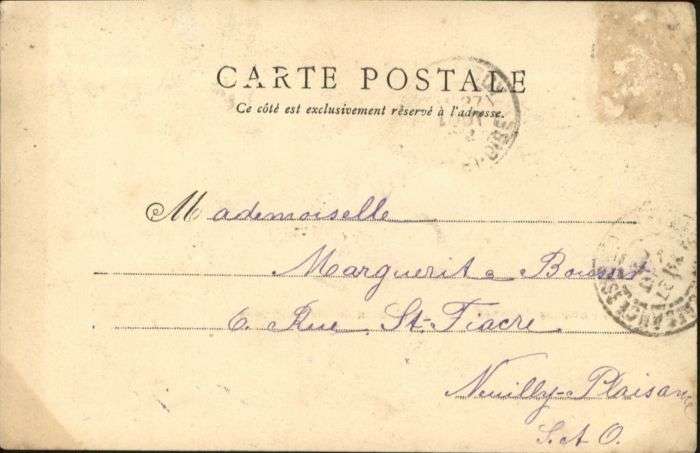 CARTE POSTALE
Ce côté est exclusivement réservé à l'adresse.
Mademoiselle
Marguerite
6. Rue St-Fiacre
Neuilly-Plaisance
S. et O.